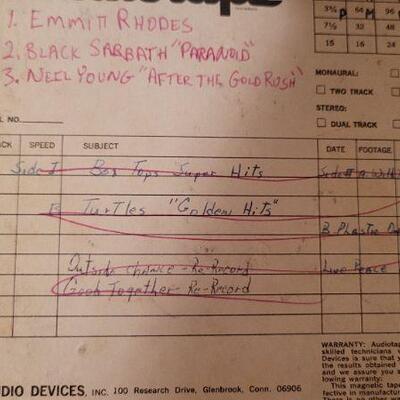 1. EMMITT RHODES
3¾ 64 96
2. BLACK SABBATH "PARANOID"
7½ 32 48
3. NEIL YOUNG "AFTER THE GOLD RUSH"
15 16 24
MONAURAL:
TWO TRACK
STEREO:
DUAL TRACK
NO.
SPEED SUBJECT DATE FOOTAGE
Side I Box Tops Super Hits Side II A.
B Turtles "Golden Hits"
B. Plastic
Outside Chance - Re-Record Live Peace
Good Together - Re-Record
WARRANTY: Audiotap
skilled technicians
Devices is sure that y
the results obtained
and we assure you
lowing warranty:
This magnetic tape
fective in manufactur
DIO DEVICES, INC. 100 Research Drive, Glenbrook, Conn. 06906